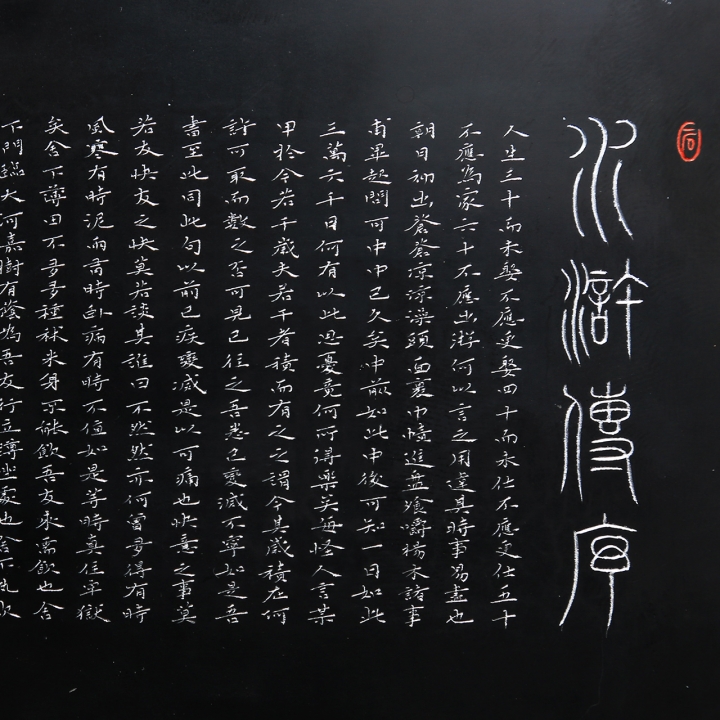 水滸傳序
人生三十而未娶不應更娶四十而未仕不應更仕五十
不應為家六十不應出游何以言之用違其時事易盡也
朝日初出蒼蒼涼涼澡頭面裹巾幘進盤飧嚼楊木諸事
甫畢起問可中中已久矣中前如此中後可知一日如此
三萬六千日何有以此思憂竟何所得樂矣每怪人言某
甲於今若干歲夫若干者積而有之之謂今其歲積在何
許可取而數之否可見已往之吾悉已變滅不寧如是吾
書至此同此句以前已疾變滅是以可痛也快意之事莫
若友快友之快莫若談其誰曰不然然亦何曾多得有時
風寒有時泥雨有時臥病有時不值如是等時真住牢獄
矣舍下薄田不多多種秫米身不能飲吾友來需飲也舍
下門臨大河嘉樹有蔭為吾友行立蹲坐處也舍下執炊